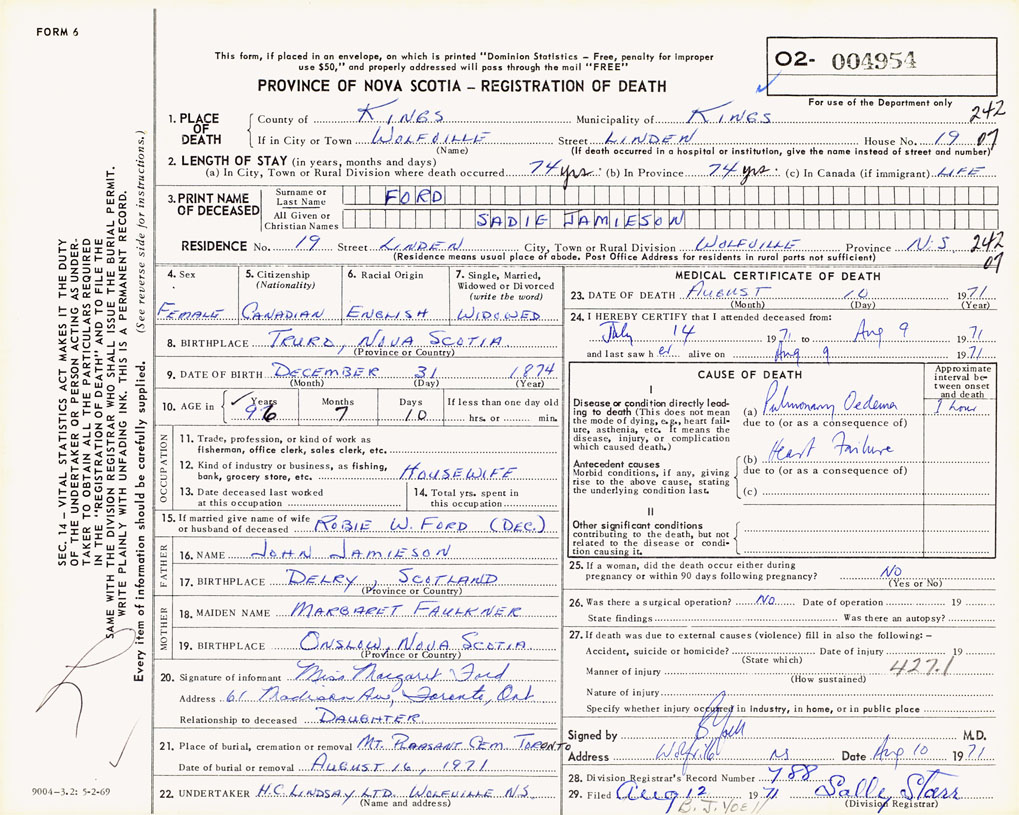 FORM 6
This form, if placed in an envelope, on which is printed "Dominion Statistics - Free, penalty for improper
use $50," and properly addressed will pass through the mail "FREE"
O2- 004954
For use of the Department only
PROVINCE OF NOVA SCOTIA – REGISTRATION OF DEATH
SEC. 14 – VITAL STATISTICS ACT MAKES IT THE DUTY
OF THE UNDERTAKER OR PERSON ACTING AS UNDER-
TAKER TO OBTAIN ALL THE PARTICULARS REQUIRED
IN THE "REGISTRATION OF DEATH" AND TO FILE THE
SAME WITH THE DIVISION REGISTRAR WHO SHALL ISSUE THE BURIAL PERMIT.
WRITE PLAINLY WITH UNFADING INK. THIS IS A PERMANENT RECORD.
Every item of information should be carefully supplied. (See reverse side for instructions.)
1. PLACE OF DEATH
County of KINGS Municipality of KINGS 242
If in City or Town WOLFVILLE Street LINDEN House No. 19 07
(Name) (If death occurred in a hospital or institution, give the name instead of street and number)
2. LENGTH OF STAY (in years, months and days)
(a) In City, Town or Rural Division where death occurred 74 yrs. (b) In Province 74 yrs. (c) In Canada (if immigrant) LIFE
3. PRINT NAME OF DECEASED
Surname or Last Name FORD
All Given or Christian Names SADIE JAMIESON
RESIDENCE No. 19 Street LINDEN City, Town or Rural Division WOLFVILLE Province N.S. 242
(Residence means usual place of abode. Post Office Address for residents in rural parts not sufficient) 07
4. Sex
FEMALE
5. Citizenship
(Nationality)
CANADIAN
6. Racial Origin
ENGLISH
7. Single, Married,
Widowed or Divorced
(write the word)
WIDOWED
8. BIRTHPLACE TRURO, NOVA SCOTIA
(Province or Country)
9. DATE OF BIRTH DECEMBER 31 1874
(Month) (Day) (Year)
10. AGE in Years 96 Months 7 Days 10 If less than one day old
hrs. or min.
OCCUPATION
11. Trade, profession, or kind of work as
fisherman, office clerk, sales clerk, etc.
12. Kind of industry or business, as fishing,
bank, grocery store, etc. HOUSEWIFE
13. Date deceased last worked
at this occupation
14. Total yrs. spent in
this occupation
15. If married give name of wife
or husband of deceased ROBIE W. FORD (DEC.)
FATHER
16. NAME JOHN JAMIESON
17. BIRTHPLACE DELRY, SCOTLAND
(Province or Country)
MOTHER
18. MAIDEN NAME MARGARET FAULKNER
19. BIRTHPLACE ONSLOW, NOVA SCOTIA
(Province or Country)
20. Signature of informant Miss Margaret Ford
Address 61 Madison Ave, Toronto, Ont
Relationship to deceased DAUGHTER
21. Place of burial, cremation or removal MT. PLEASANT CEM TORONTO
Date of burial or removal AUGUST 16, 1971
22. UNDERTAKER H.C. LINDSAY LTD. WOLFVILLE N.S.
(Name and address)
9004-3.2: 5-2-69
MEDICAL CERTIFICATE OF DEATH
23. DATE OF DEATH AUGUST 10 1971
(Month) (Day) (Year)
24. I HEREBY CERTIFY that I attended deceased from:
July 14 1971 to Aug 9 1971
and last saw h er alive on Aug 9 1971
CAUSE OF DEATH
Approximate
interval be-
tween onset
and death
I
Disease or condition directly lead-
ing to death (This does not mean
the mode of dying, e.g., heart fail-
ure, asthenia, etc. It means the
disease, injury, or complication
which caused death.)
(a) Pulmonary Oedema 1 hour
due to (or as a consequence of)
Antecedent causes
Morbid conditions, if any, giving
rise to the above cause, stating
the underlying condition last.
(b) Heart Failure
due to (or as a consequence of)
(c)
II
Other significant conditions
contributing to the death, but not
related to the disease or condi-
tion causing it.
25. If a woman, did the death occur either during
pregnancy or within 90 days following pregnancy? NO
(Yes or No)
26. Was there a surgical operation? No. Date of operation 19
State findings Was there an autopsy?
27. If death was due to external causes (violence) fill in also the following: –
Accident, suicide or homicide? Date of injury 19
(State which)
Manner of injury 427.1
(How sustained)
Nature of injury
Specify whether injury occurred in industry, in home, or in public place
Signed by M.D.
Address Wolfville NS Date Aug 10 1971
28. Division Registrar's Record Number 788
29. Filed Aug 12 1971 Sally Starr
(Division Registrar)